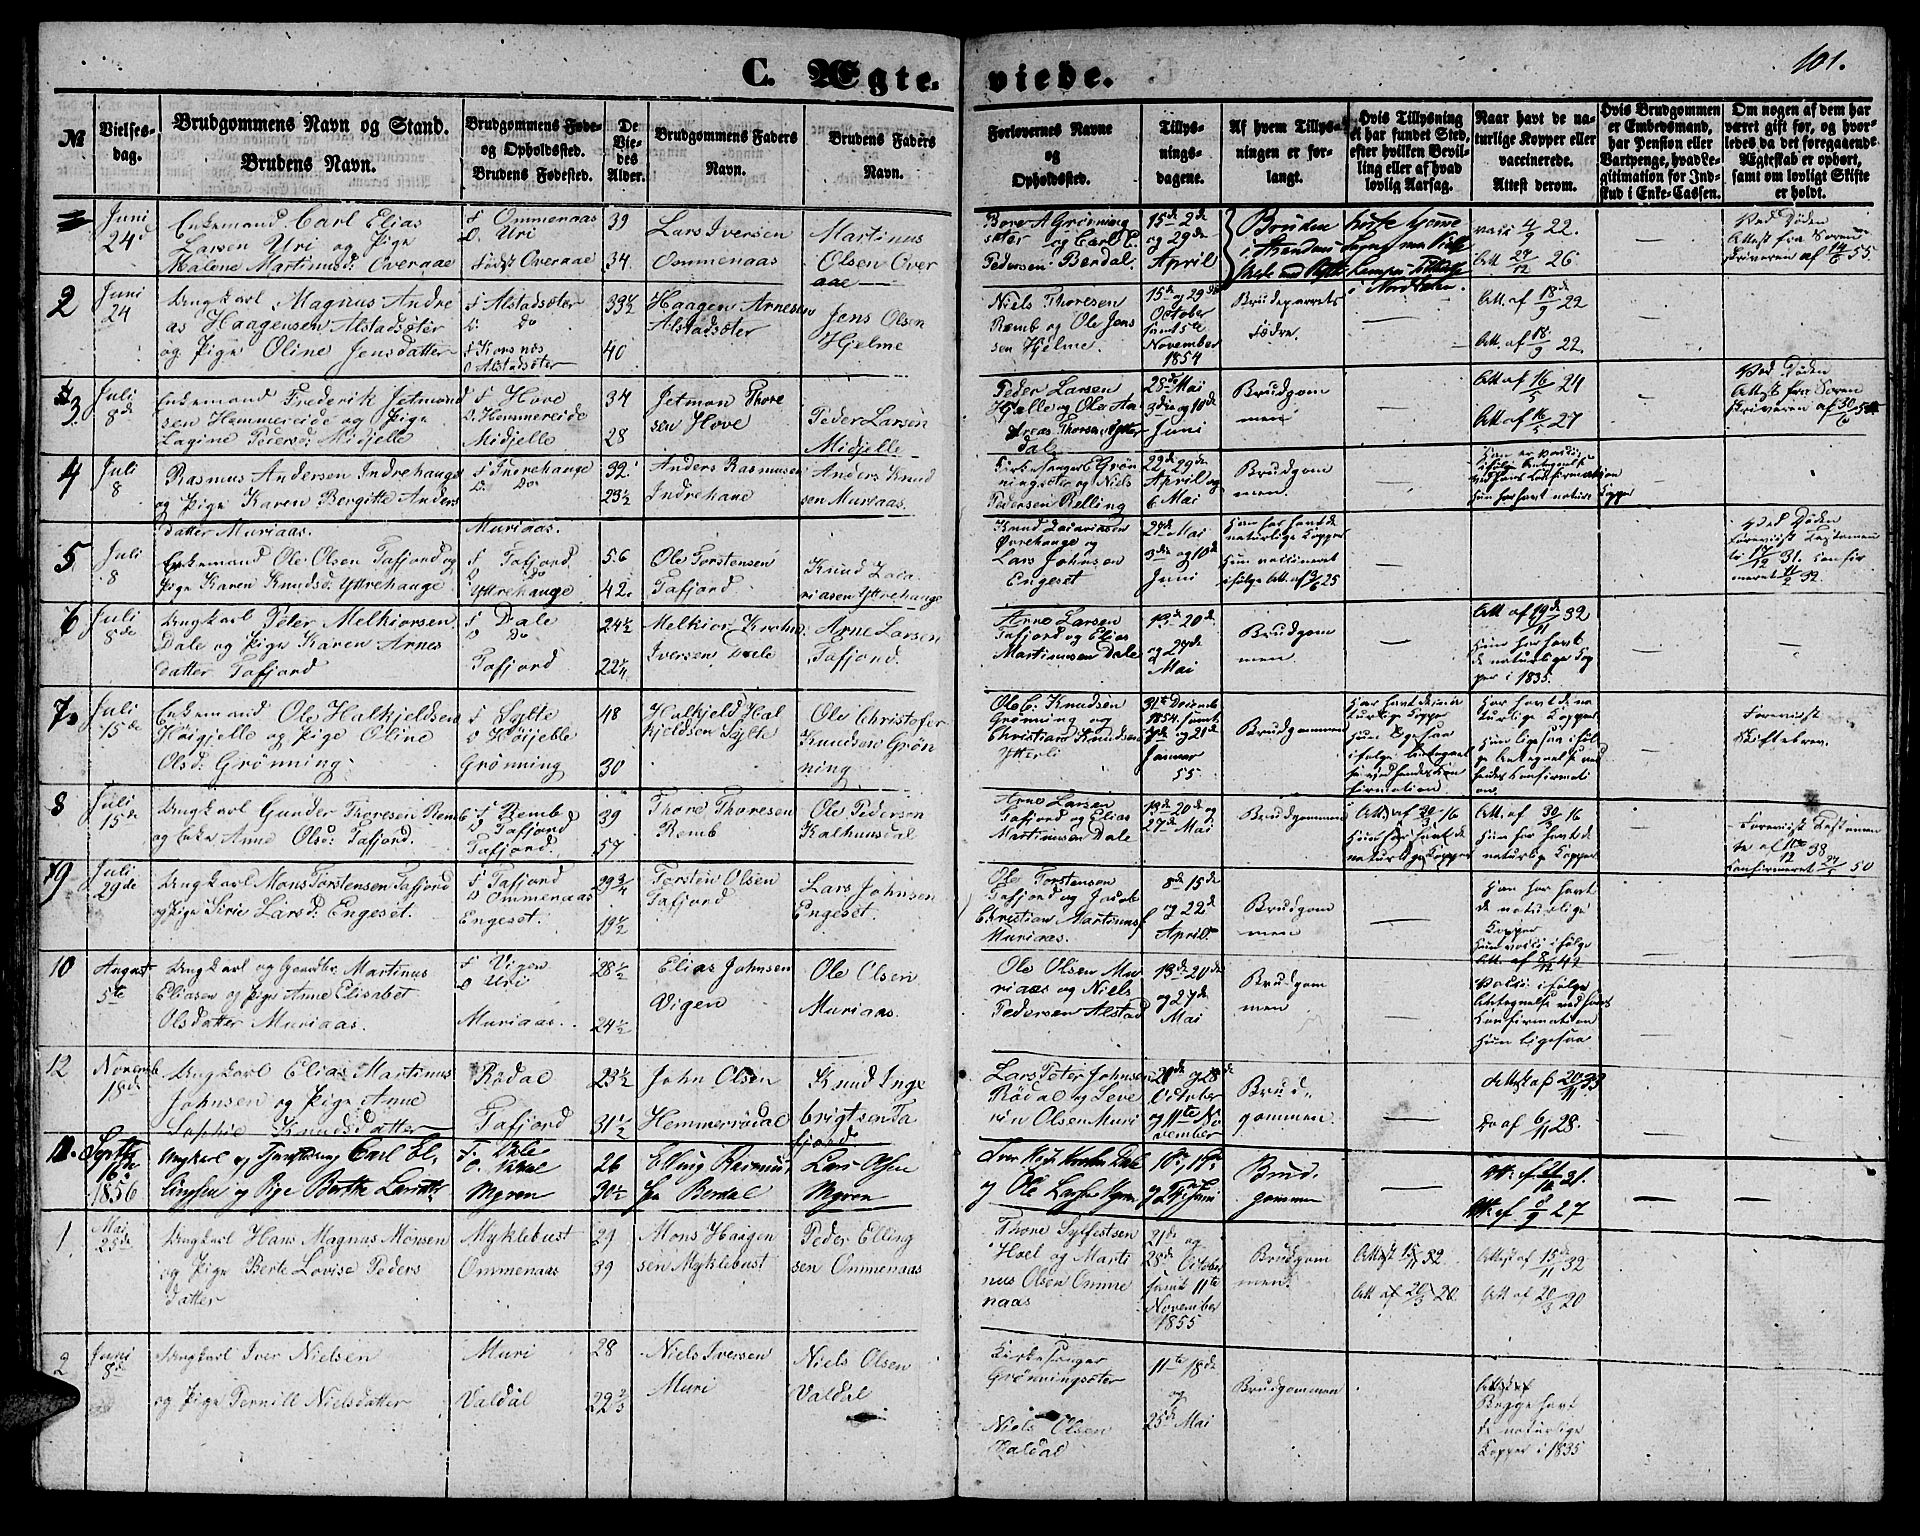 101.
C. Ægte-
viede.
№
Vielses-
dag.
Brudgommens Navn og Stand.
Brudens Navn.
Brudgommens Føde-
og Opholdssted.
Brudens Fødested.
De
Vie-
des
Alder.
Brudgommens Faders
Navn.
Brudens Faders
Navn.
Forlovernes Navne
og
Opholdssted.
Tillys-
nings-
dagene.
Af hvem Tillys-
ningen er for-
langt.
Hvis Tillysning
ei har fundet Sted,
efter hvilken Bevil-
ling eller af hvad
lovlig Aarsag.
Naar havt de na-
turlige Kopper eller
vaccinerede.
Attest derom.
Hvis Brudgommen
er Embedsmand,
har Pension eller
Vartpenge, hvad Le-
gitimation for Ind-
skud i Enke-Cassen.
Om nogen af dem har
været gift før, og hvor-
ledes da det foregaaende
Ægteskab er ophørt,
samt om lovligt Skifte
er holdt.
Juni
24d
Enkemand Carl Elias
Larsen Uri og Pige
Halene Martinusd: Overaae
F Ommenaas
O. Uri
Født Overaae
39
34
Lars Iversen
Ommenaas
Martinus
Olsen Over
aae
og Carl E.
Pedersen Berdal.
15de 2de
og 29de
April
Bruden
vacc 4/9 22.
Att 27/12 26
—
Ved Døden
Attest fra Soren
skriveren af 14/6 55.
2
Juni
24
Ungkarl Magnus Andre
as Haagensen Alstadsæter
og Pige Oline Jensdatter
F Alstadsæter
O do
F Korsnæs
O Alstadsæter
33½
40
Haagen Arnesen
Alstadsæter
Jens Olsen
Hjelme
Niels Thoresen
Remb og Ole Jens
sen Hjelme.
15de og 29de
October
samt 5te
November
1854
Brudeparrets
Fødre.
Att. af 18/9 22
Att. af 18/9 22.
3
Juli
8de
Enkemand Frederik Jetmund
sen Hemmereide og Pige
Lagine Pedersd: Midjelle
F Hove
O. Hemmereide
Midjelle
34
28
Jetmon Thore
sen Hove
Peder Larsen
Midjelle
Peder Larsen
Hjelle og Ole An
dreas Thorsen Ytter
dal
28de Mai
3die og 10de
Juni
Brudgom
men
—
Att. af 16/5 24
Att. af 16/5 27
—
Ved Døden
Attest fra Soren
skriveren af 30/6 54
4
Juli
8
Rasmus Andersen Indrehauge
og Pige Karen Bergitte Anders
datter Muriaas.
F Indrehauge
O. Do
Muriaas.
32.
23½
Anders Rasmussen
Indrehaue
Anders Knud
sen Muriaas.
Kirkesanger Grøn
ningsæter og Niels
Pedersen Relling
22de 29de
April og
6 Mai
Brudgom
men.
—
ved hans Confirmation
hun har havt naturl Kopper
—
5
Juli
8
Enkemand Ole Olsen Tafjord og
Pige Karen Knudsd. Yttrehauge
F Tafjord
O Do
Yttrehauge
56
42.
Ole Torstensen
Tafjord
Knud Zaca
riasen Yttrehauge
Knud Zacariasen
Øvrehauge og
Lars Johnsen
Engeset
29de Mai
3die og 10de
Juni
Han har havt de
naturlige Kopper
Hun vaccineret
ifølge Att. af 3/6 25
Ved Døden
Foreviist Testamen
te 17/12 31. Confir
meret 11/2 32.
6
Juli
8de
Ungkarl Peter Melkiorsen
Dale og Pige Karen Arnes
datter Tafjord
F Dale
O Do
Tafjord
24½
22¼
Melkior Krohn
Iversen Dale
Arne Larsen
Tafjord.
Arne Larsen
Tafjord og Elias
Martinusen Dale
13de 20de
og 27de
Mai
Brudgom
men.
—
Att af 19de/11 32
Hun har havt
de naturlige Kop
per i 1835.
—
7.
Juli
15de
Enkemand Ole Halkjeldsen
Høigjelle og Pige Oline
Olsd: Grønning.
F Sylte
O Høijelle
Grønning
48
30
Halkjeld Hal
kjeldsen Sylte
Ole Christofer
Knudsen Grøn
ning
Ole C. Knudsen
Grønning og
Christian Knudsen
Ytterli
31te Decemb
1854. samt
7de og 21de
Januar
55.
Brudgommen
Har havt de na
turlige Kopper
Hun ligesaa
ifølge Antegnel
se ved hendes Con
firmation
Har havt de na
turlige Kopper
Hun ligesaa iføl
ge Antegnelse ved
hendes Confirmati
on.
—
Foreviist
Skiftebrev.
8
Juli
15de
Ungkarl Gunder Thoresen Remb
og Enke Anne Olsd: Tafjord.
F Remb
O Tafjord
Tafjord.
39
57
Thore Thoresen
Remb
Ole Pedersen
Kalhusdal
Arne Larsen
Tafjord og Elias
Martinusen Dale
13de 20de og
27de Mai
Brudgommen
Att. af 30/3 16
Hun har havt de
naturlige Kopper
Att. af 30/3 16
Hun har havt de
naturlige Kopper
—
Foreviist Testamen
te af 10de/12 38
Confirmeret 24/5 50
9
Juli
29de
Ungkarl Mons Torstensen Tafjord
og Pige Sirie Larsd: Engeset.
F Tafjord
O Ommenaas
Engeset.
29¾
19½
Torsten Olsen
Tafjord
Lars Johnsen
Engeset.
Ole Torstensen
Tafjord og Jacob
Christian Martinus
Muriaas.
8de 15de
og 22de
April
Brudgom
men
—
Han har havt
de naturlige
Kopper
Hun vacc. ifølge
Att. af 8/12 42
10
August
5te
Ungkarl og Gaardbr Martinus
Eliasen og Pige Anne Elisabet
Olsdatter Muriaas.
F Vigen
O Uri
Muriaas.
28½
24½
Elias Johnsen
Vigen
Ole Olsen
Muriaas.
Ole Olsen Mu
riaas og Niels
Pedersen Alstad
13de 20de
og 27de
Mai
Brudgom
men
—
Vacc. ifølge
Antegnelse ved hans
Confirmation
Hun ligesaa
—
12
Novemb
18de
Ungkarl Elias Martinus
Johnsen og Pige Anne
Sophie Knudsdatter
Rødal
Tafjord
23½
31½
John Olsen
Hemmerrødal
Knud Inge
brigtsen Ta
fjord
Lars Peter Johnsen
Rødal og Seve
rin Olsen Muri
21de og 28de
October
og 11te No
vember
Brud-
gommen.
—
Attest af 20/11 33
Do af 6/11 28.
—
11.
Septbr
16de
1856
Ungkarl og Carl El-
lingsen og Pige Berthe Larsdtr
F. Dale
O. Valdal
Myren
26
30½
Elling Rasmus
sen Berdal
Lars Olsen
Myren
og Ole Larsen Myren
Brud-
gommen
—
Att. af 21/10 31.
Att. af 8/9 27
—
1
Mai
25de
Ungkarl Hans Magnus Monsen
og Pige Berte Lovise Peders
datter
Myklebust
Ommenaas
29
39
Mons Haagen
sen Myklebust
Peder Elling
sen Ommenaas
Thore Sylfestsen
Hoel og Marti
nus Olsen Omme
naas
21de og
28de October
samt 11te
November
1855
Brudgom
men.
Attest 15/11 32.
Att af 20/3 20.
Attest af 15/11 32
Att af 20/3 20
2
Juni
8de
Ungkarl Iver Nielsen
og Pige Pernill Nielsdatter
Muri
Valdal
28
29⅔
Niels Iversen
Muri
Niels Olsen
Valdal
Kirkesanger
Grønningsæter
og
Niels Olsen
Valdal
11te 18de
og
25de Mai
Brudgommen
Attest af
Begge havt
de naturlige
Kopper i 1835